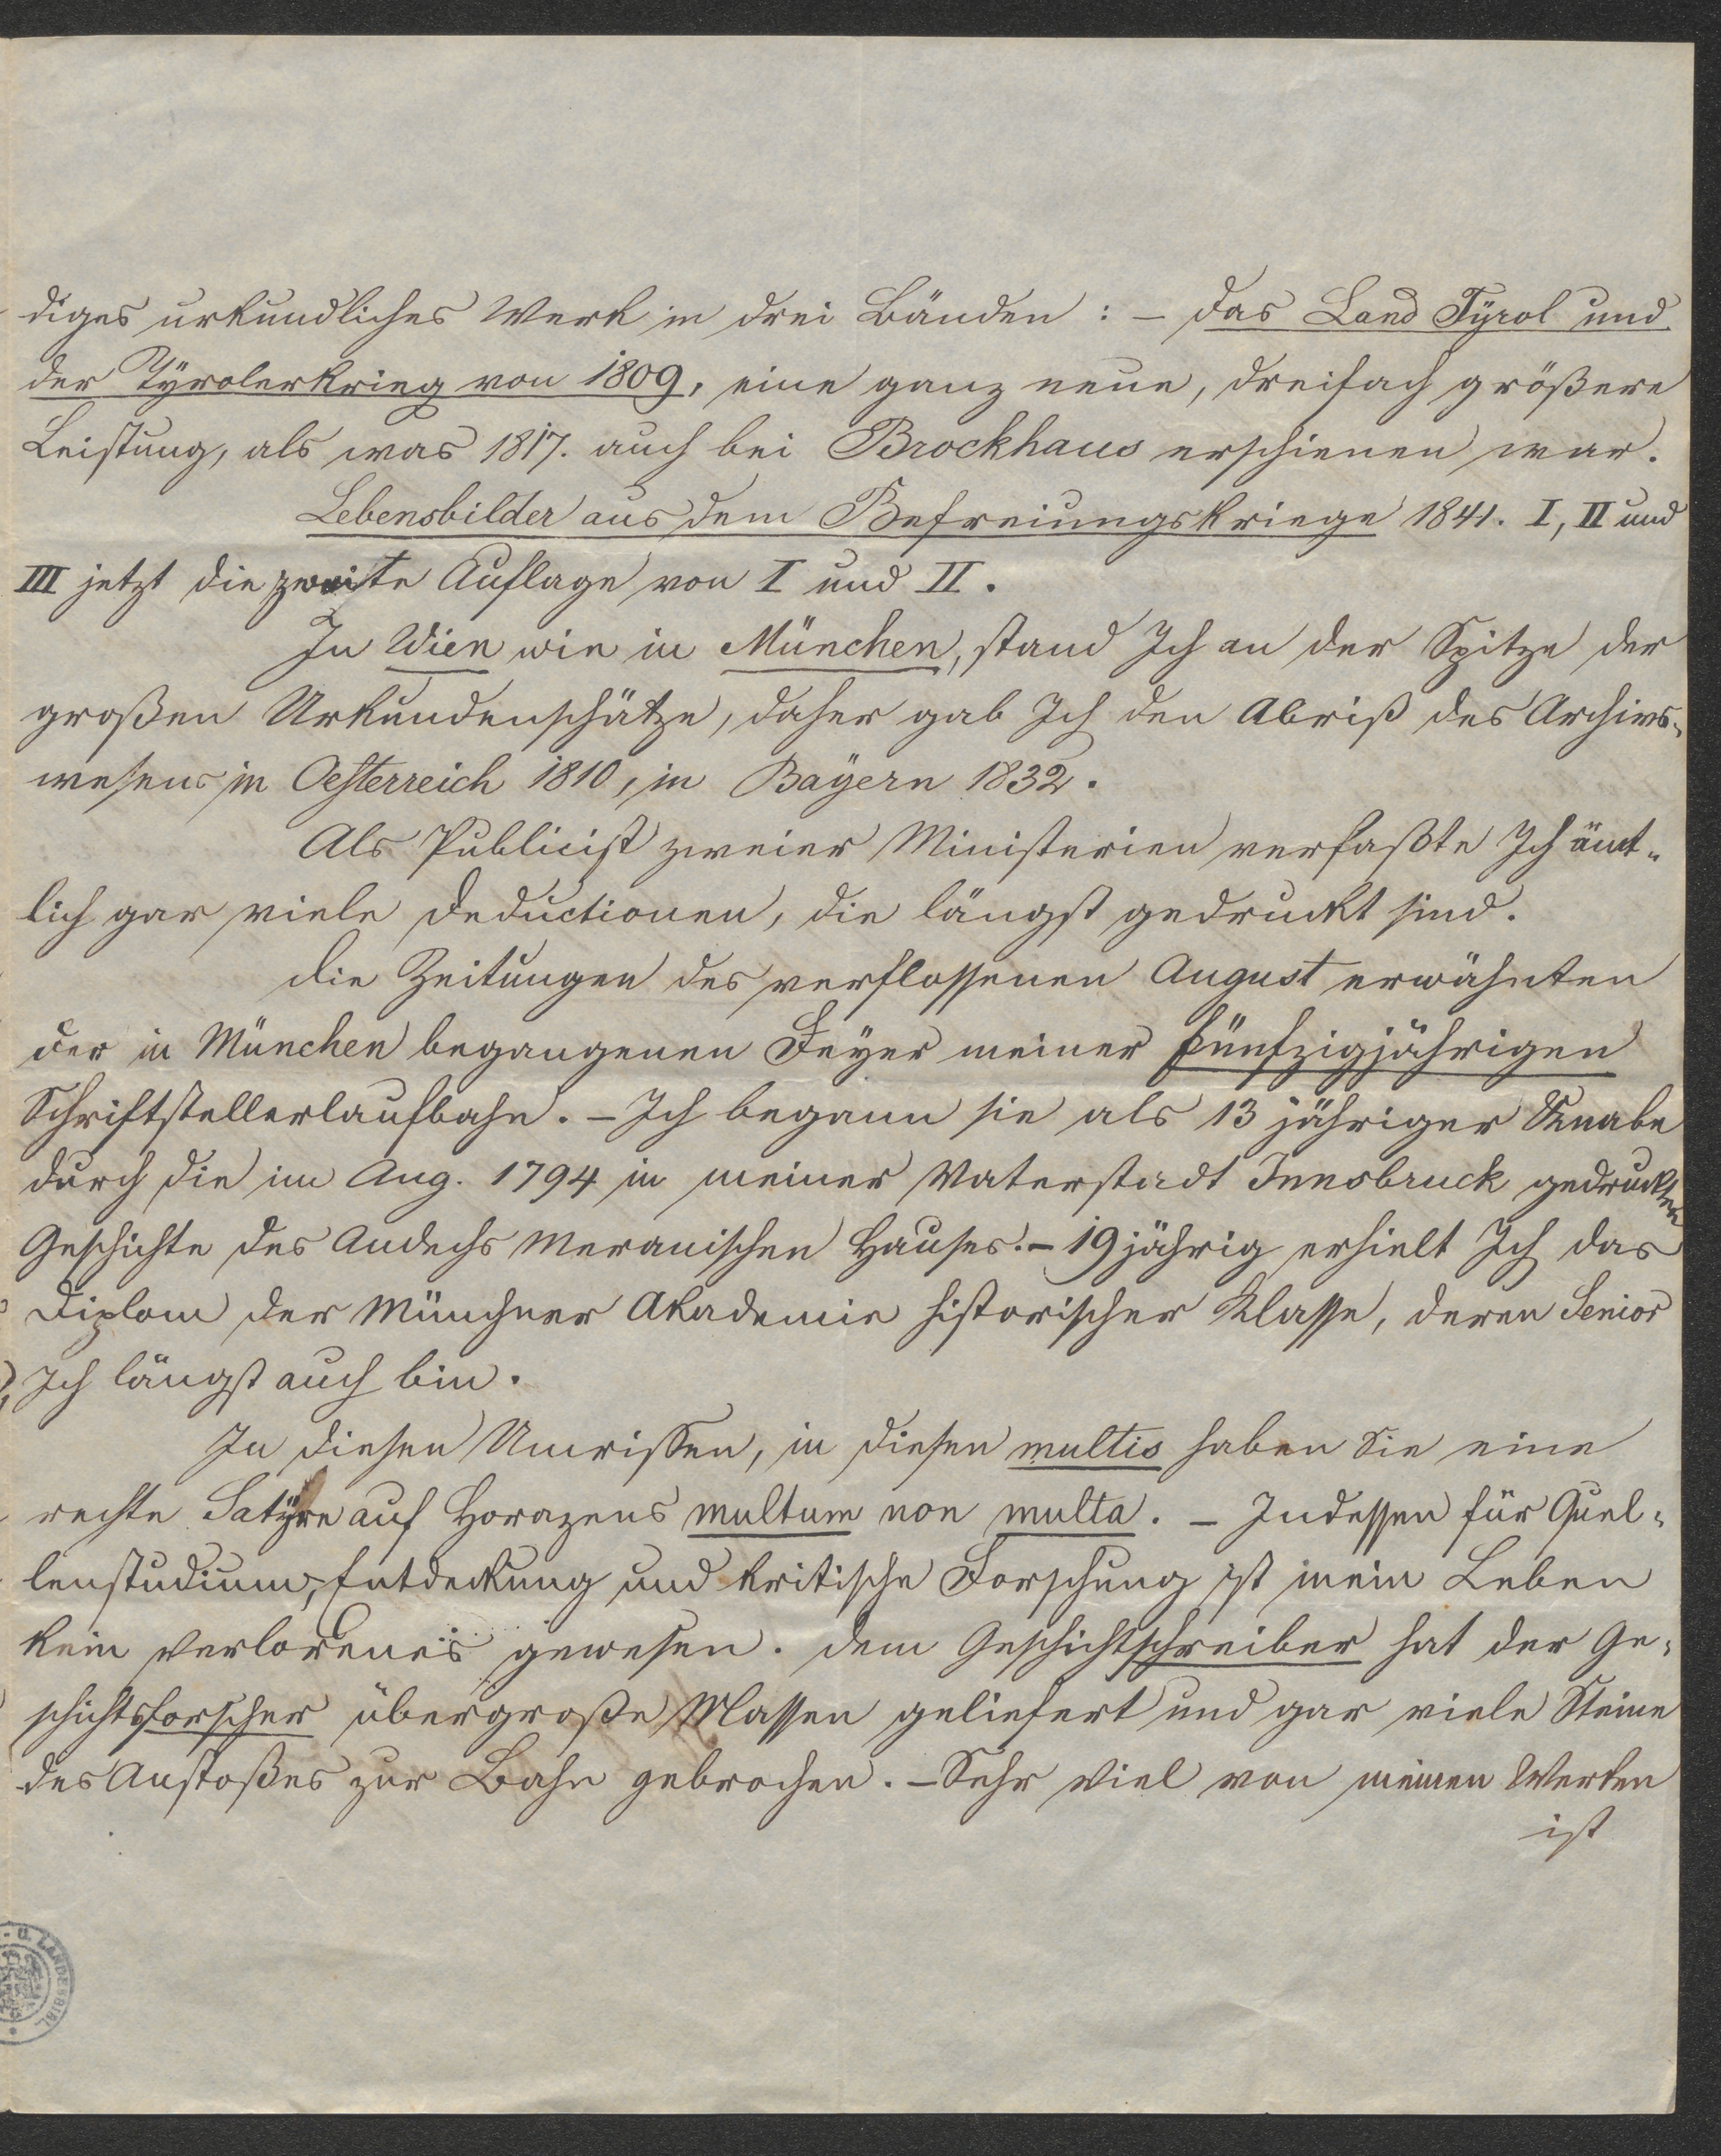 diges urkundliches Werk in drei Bänden : – das Land Tÿrol und
der Tÿrolerkrieg von 1809, eine ganz neue, dreifach größere
Leistung, als was 1817. auch bei Brockhaus erschienen war.
Lebensbilder aus dem Befreiungskriege 1841. I, II und
III jetzt die zweite Auflage von I und II.
In Wien wie in München, stand Ich an der Spitze der
großen Urkundenschätze, daher gab Ich den Abriß des Archivs-
wesens in Oesterreich 1810, in Bayern 1832.
Als Publicist zweier Ministerien verfaßte Ich ämt-
lich gar viele Deductionen, die längst gedruckt sind.
Die Zeitungen des verflossenen August erwähnten
der in München begangenen Feÿer meiner fünfzigjährigen
Schriftstellerlaufbahn. – Ich begann sie als 13 jähriger Knabe
durch die im Aug. 1794 in meiner Vaterstadt Innsbruck gedruckten
Geschichte des Andechs Meranischen Hauses. – 19 jährig erhielt Ich das
Diplom der Münchner Akademie historischer Klasse, deren Senior
Ich längst auch bin.
In diesen Umrissen, in diesen multis haben Sie eine
rechte Satÿre auf Horazens multum non multa. – Indessen für Quel-
lenstudium, Entdeckung und kritische Forschung ist mein Leben
kein verlorenes gewesen. Dem Geschichtschreiber hat der Ge-
schichtsforscher übergroße Massen geliefert und gar viele Steine
des Anstoßes zur Bahn gebrochen. – Sehr viel von meinen Werken
ist
U. LANDESBIBL.